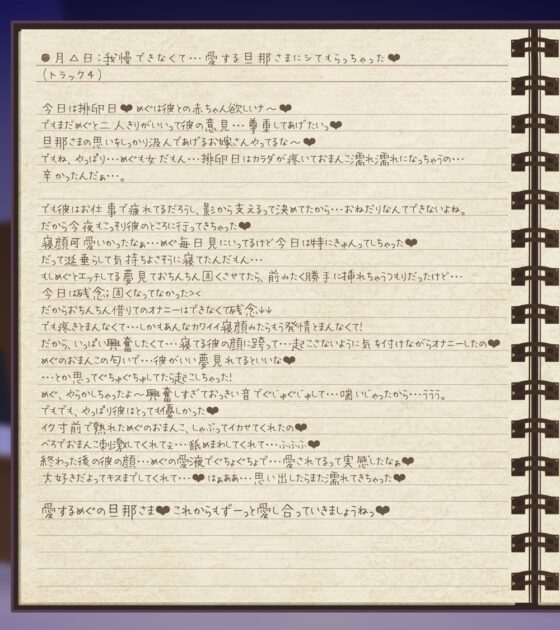 ●月△日：我慢できなくて…愛する旦那さまにシてもらっちゃった❤
（トラック４）
今日は排卵日❤めぐは彼との赤ちゃん欲しいナ～❤
でもまだめぐと二人きりがいいって彼の意見…尊重してあげたいっ❤
旦那さまの思いをしっかり汲んであげるお嫁さんやってるな～❤
でもね、やっぱり…めぐも女だもん…排卵日はカラダが疼いておまんこ濡れ濡れになっちゃうの…
辛かったんだぁ…。
でも彼はお仕事で疲れてるだろうし、影から支えるって決めてたから…おねだりなんてできないよね。
だから今夜もこっそり彼のところに行ってきちゃった❤
寝顔可愛いかったなぁ…めぐ毎日見にいってるけど今日は特にきゅんってしちゃった❤
だって涎垂らして気持ちよさそうに寝てたんだもん…
もしめぐとエッチしてる夢見ておちんちん固くさせてたら、前みたく勝手に挿れちゃうつもりだったけど…
今日は残念ﾅ固くなってなかった><
だからおちんちん借りてのオナニーはできなくて残念↓↓
でも疼きとまんなくて…しかもあんなカワイイ寝顔みたらもう発情とまんなくて！
だから、いっぱい興奮したくて…寝てる彼の顔に跨って…起こさないように気を付けながらオナニーしたの❤
めぐのおまんこの匂いで…彼がいい夢見れてるといいな❤
…とか思ってぐちゅぐちゅしてたら起こしちゃった！
めぐ、やらかしちゃったよ～興奮しすぎておっきい音でぐじゅぐじゅして…喘いじゃったから…ううう。
でもでも、やっぱり彼はとっても優しかった❤
イク寸前で熟れためぐのおまんこ、しゃぶってイカせてくれたの❤
べろでおまんこ刺激してくれてぇ…舐めまわしてくれて…ふふふ❤
終わった後の彼の顔…めぐの愛液でぐちょぐちょで…愛されてるって実感したなぁ❤
大好きだよってキスまでしてくれて…❤はぁああ…思い出したらまた濡れてきちゃった❤
愛するめぐの旦那さま❤これからもずーっと愛し合っていきましょうねっ❤